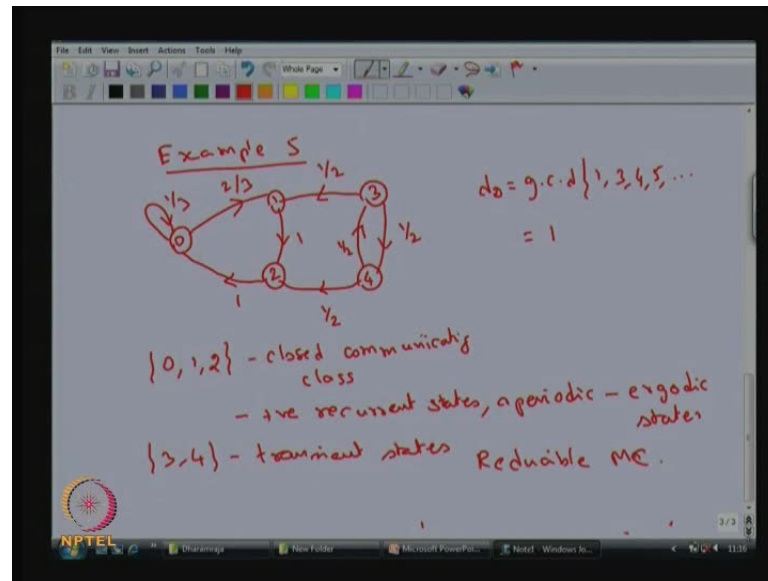 File Edit View Insert Actions Tools Help
Whole Page
Example 5
1/3
2/3
1/2
0
1
3
1
1/2
1/2
2
4
1
1/2
d0 = g.c.d {1, 3, 4, 5, ...
= 1
{0, 1, 2} - closed communicatig
class
- +ve recurrent states, aperiodic - ergodic
states
{3, 4} - transient states Reducible MC.
3/3
NPTEL
Dharamraja
New Folder
Microsoft PowerPoi...
Note1 - Windows Jo...
11:16